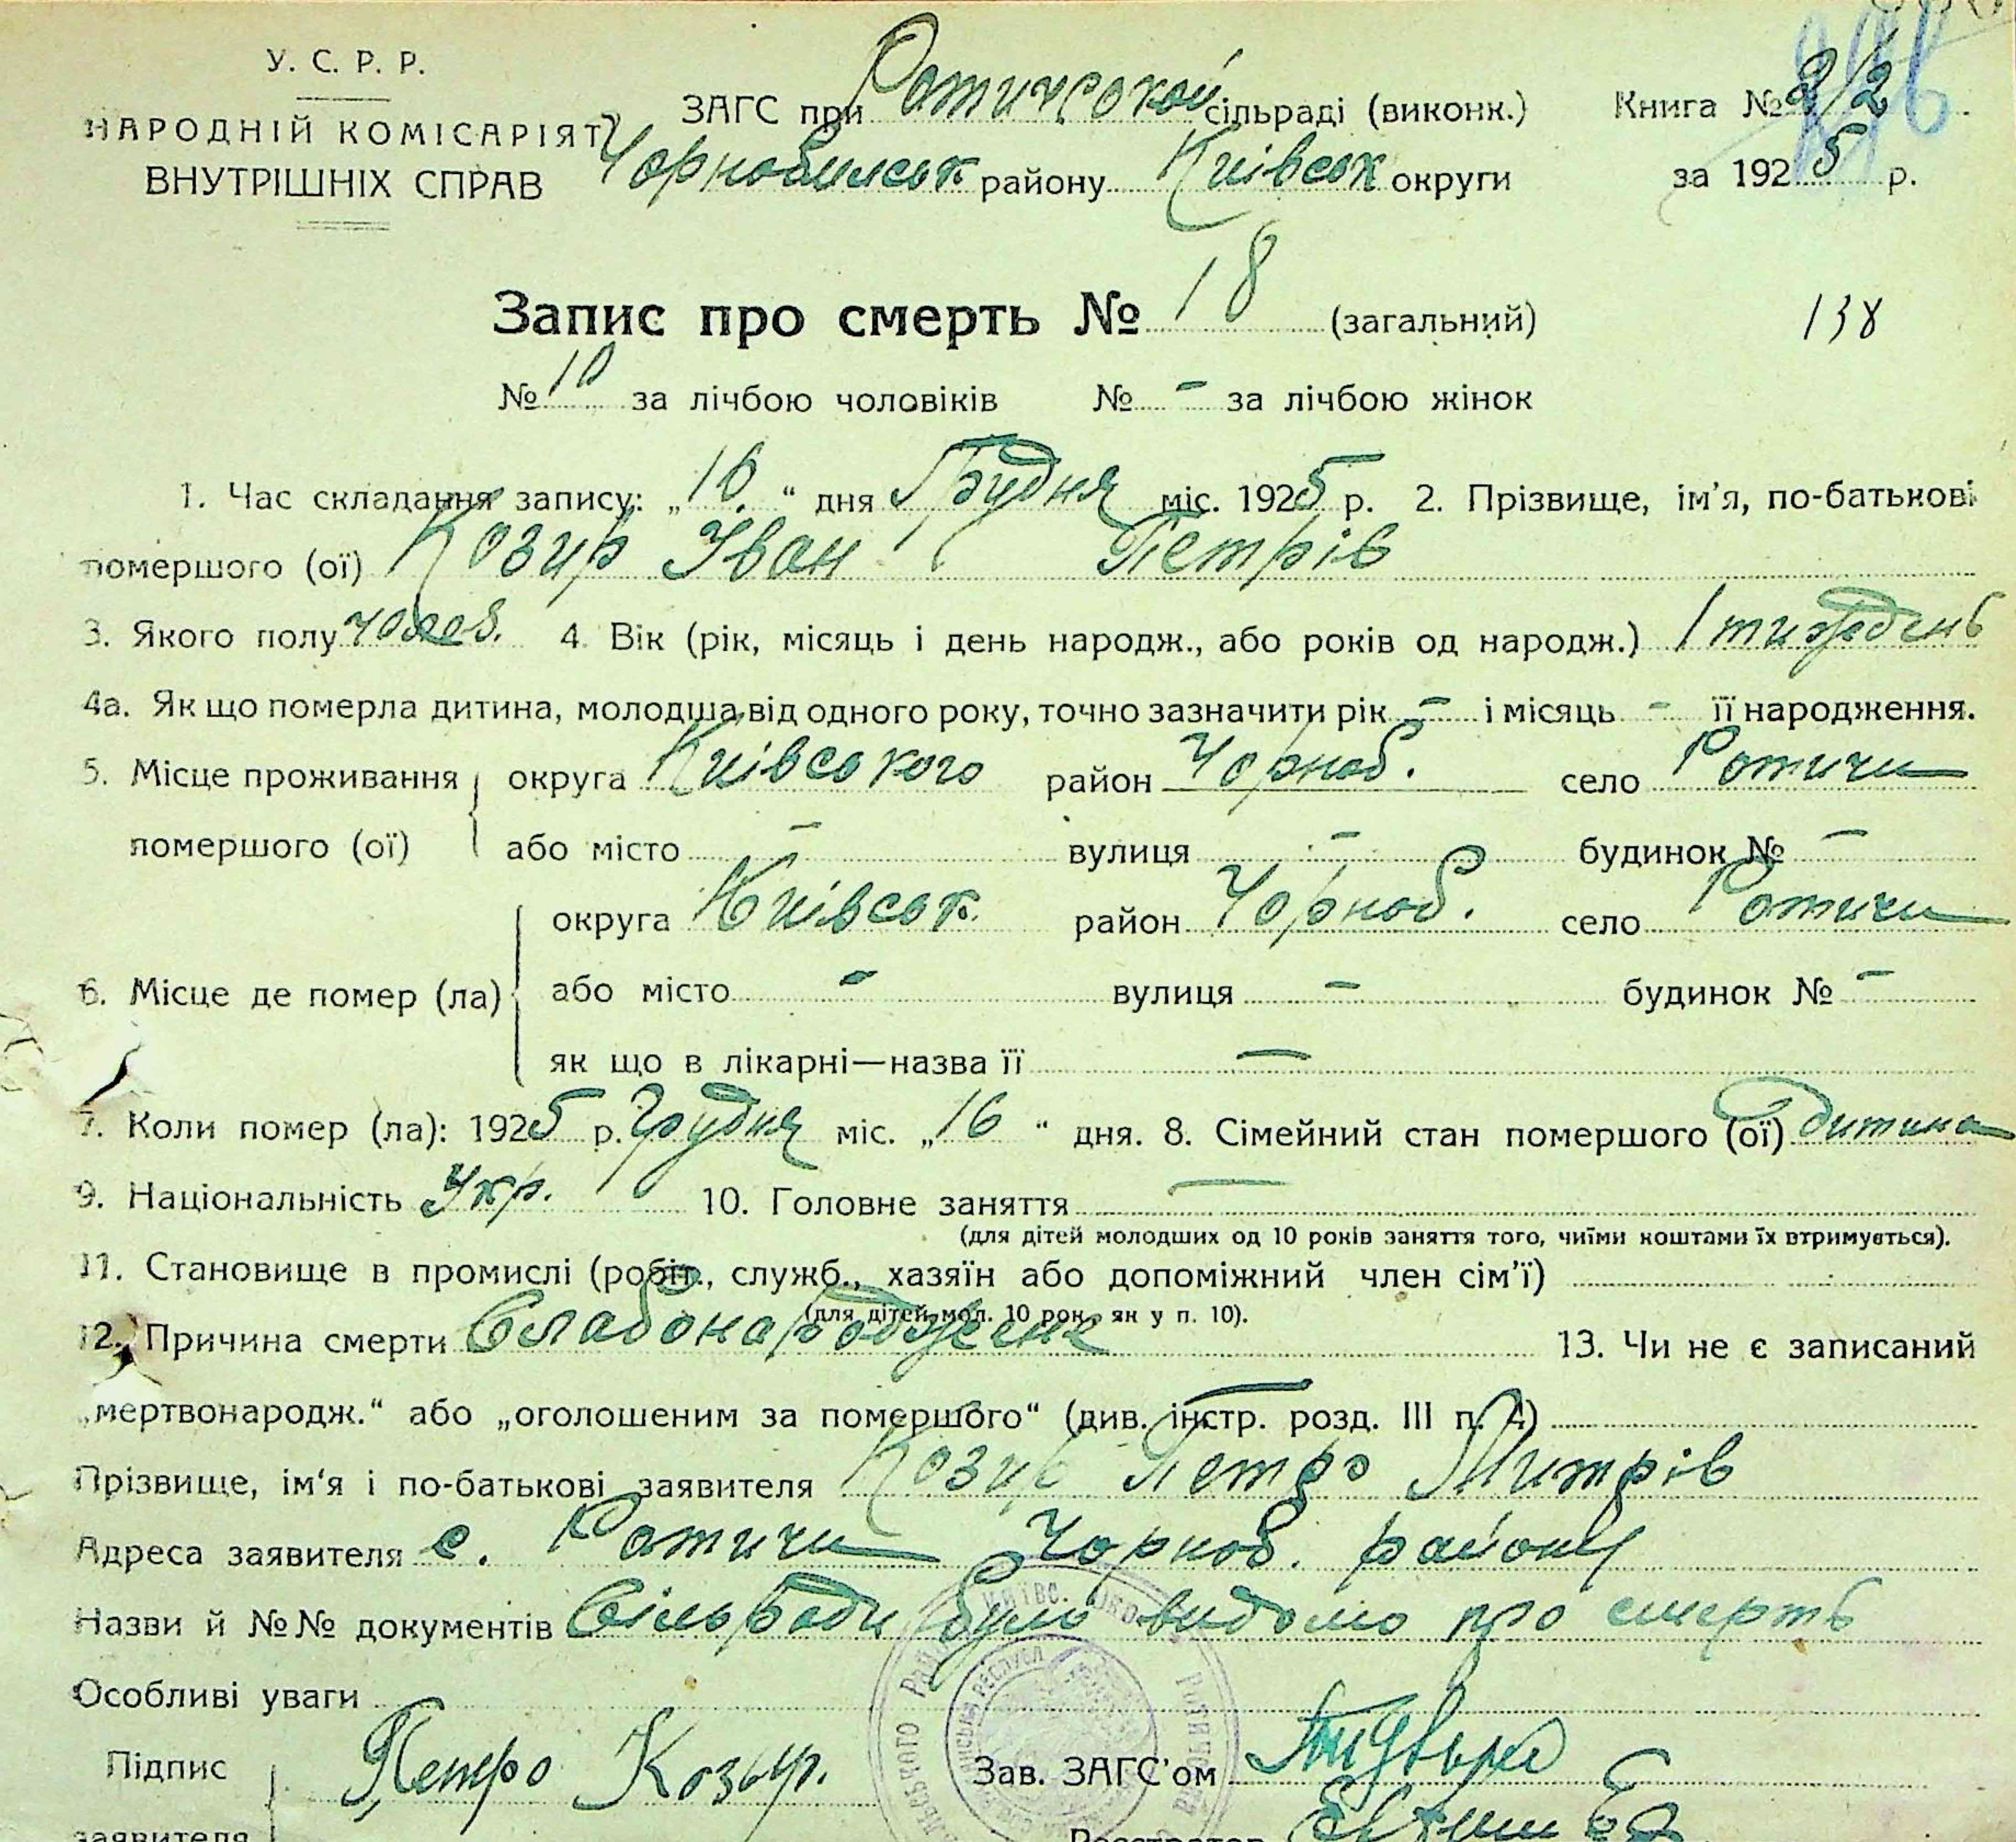 У. С. Р. Р.
НАРОДНІЙ КОМІСАРІЯТ
ВНУТРІШНІХ СПРАВ
ЗАГС при Ротичської сільраді (виконк.)
Чорнобильськ району Київськ округи
Книга № 2/2
за 1925 р.
Запис про смерть № 18 (загальний)
138
№ 10 за лічбою чоловіків № - за лічбою жінок
1. Час складання запису: „16“ дня Грудня міс. 1925 р. 2. Прізвище, ім'я, по-батькові
помершого (ої) Козир Іван Петрів
3. Якого полу чолов. 4. Вік (рік, місяць і день народж., або років од народж.) 1 тиждень
4а. Як що померла дитина, молодша від одного року, точно зазначити рік - і місяць - її народження.
5. Місце проживання округа Київського район Чорноб. село Ротичи
помершого (ої) або місто - вулиця - будинок № -
округа Київськ. район Чорноб. село Ротичи
6. Місце де помер (ла) або місто - вулиця - будинок № -
як що в лікарні—назва її —
7. Коли помер (ла): 1925 р. Грудня міс. „16“ дня. 8. Сімейний стан помершого (ої) дитина
9. Національність Укр. 10. Головне заняття —
(для дітей молодших од 10 років заняття того, чиїми коштами їх втримується).
11. Становище в промислі (робіт., служб., хазяїн або допоміжний член сім'ї)
(для дітей мол. 10 рок, як у п. 10).
12. Причина смерти Слабонароджене 13. Чи не є записаний
„мертвонародж.“ або „оголошеним за помершого“ (див. інстр. розд. III п. 4) —
Прізвище, ім'я і по-батькові заявителя Козир Петро Митрів
Адреса заявителя с. Ротичи Чорноб. району
Назви й №№ документів Сільради було видомо про смерть
Особливі уваги
Підпис Петро Козыр. Зав. ЗАГС'ом
заявителя Реєстратор